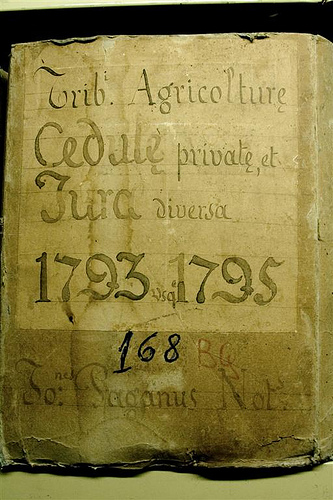 Trib.ⁱ Agricolture
Cedulę privatę, et
Jura diversa
1793 usqᵉ 1795
168 BG
Jo:ⁿᵉˢ Paganus Not.ˢ